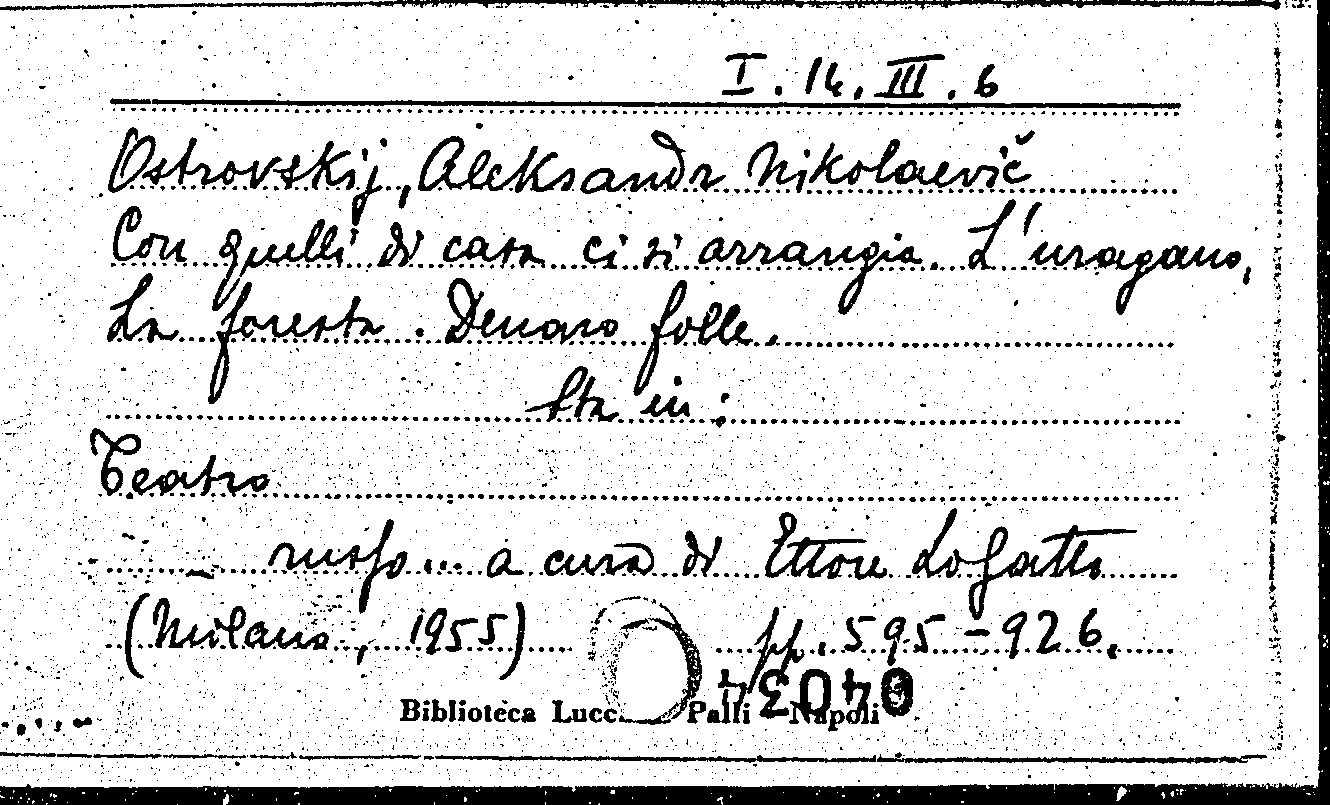 I. 14. III. 6
Ostrovskij, Aleksandr Nikolaevič
Con quelli di casa ci si arrangia. L'uragano,
La foresta. Denaro folle.
Sta in:
Teatro
russo... a cura di Ettore Lo Gatto
(Milano, 1955) pp. 595-926.
Biblioteca Palli Napoli